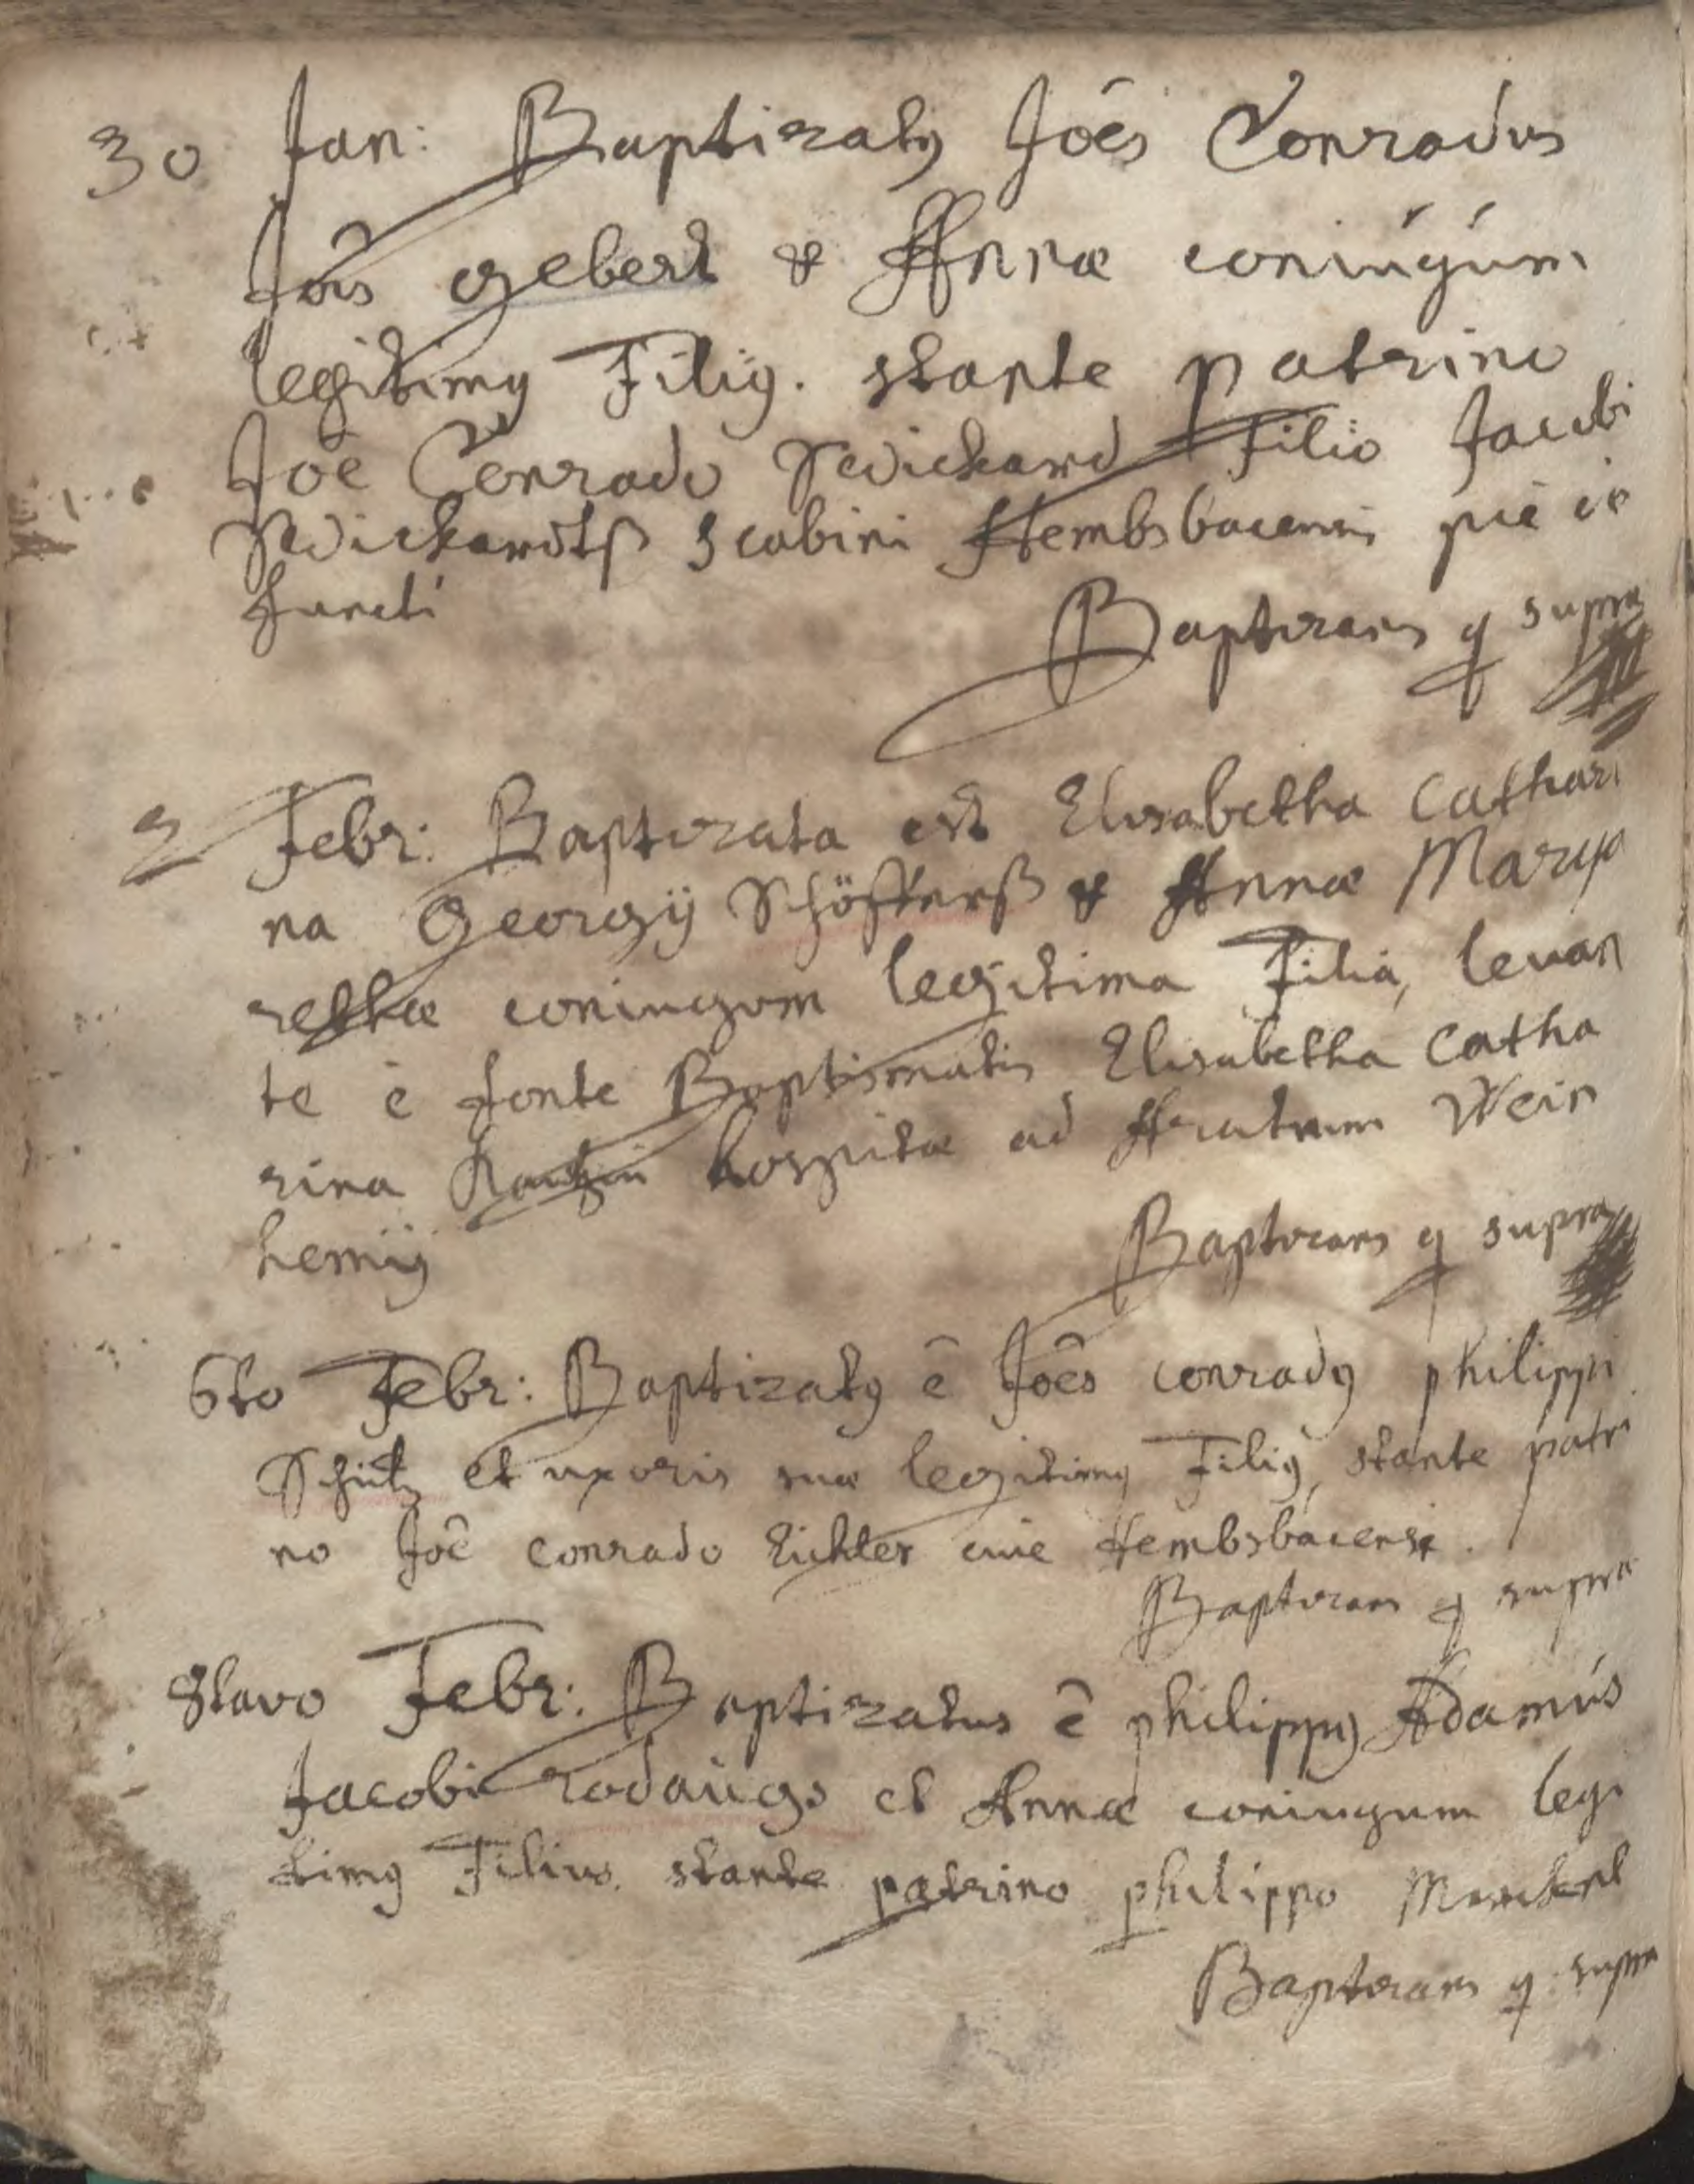 30 Jan: Baptizatꝰ Joẽs Conradus
Jois Gebert & Annæ coniúgúm
legitimꝰ Filiꝰ. stante patrino
Joẽ Conrado Swickard Filio Jacobi
Swickardtß scabini Hembsbacensis piè de
functi
Baptizans q supra
2 Febr: Baptizata est Elisabetha Cathari
na Georgij Schöfferß & Annæ Marga
rethæ coniugum legitima Filia, levan
te è fonte Baptismatis Elisabetha Catha
rina hospitæ ad Aratrum Wein
hemij
Baptizans q supra
6to Febr: Baptizatꝰ ẽ Joẽs conradꝰ philippi
Schütz et uxoris suæ legitimꝰ Filiꝰ, stante patri
no Joẽ conrado Eichler cive Hembsbacensi.
Baptizans q supra
8tavo Febr: Baptizatus ẽ philippꝰ Adamús
Jacobi rodaúgs et Annæ coniugum legi
timꝰ Filius. stante patrino philippo
Baptizans q supra